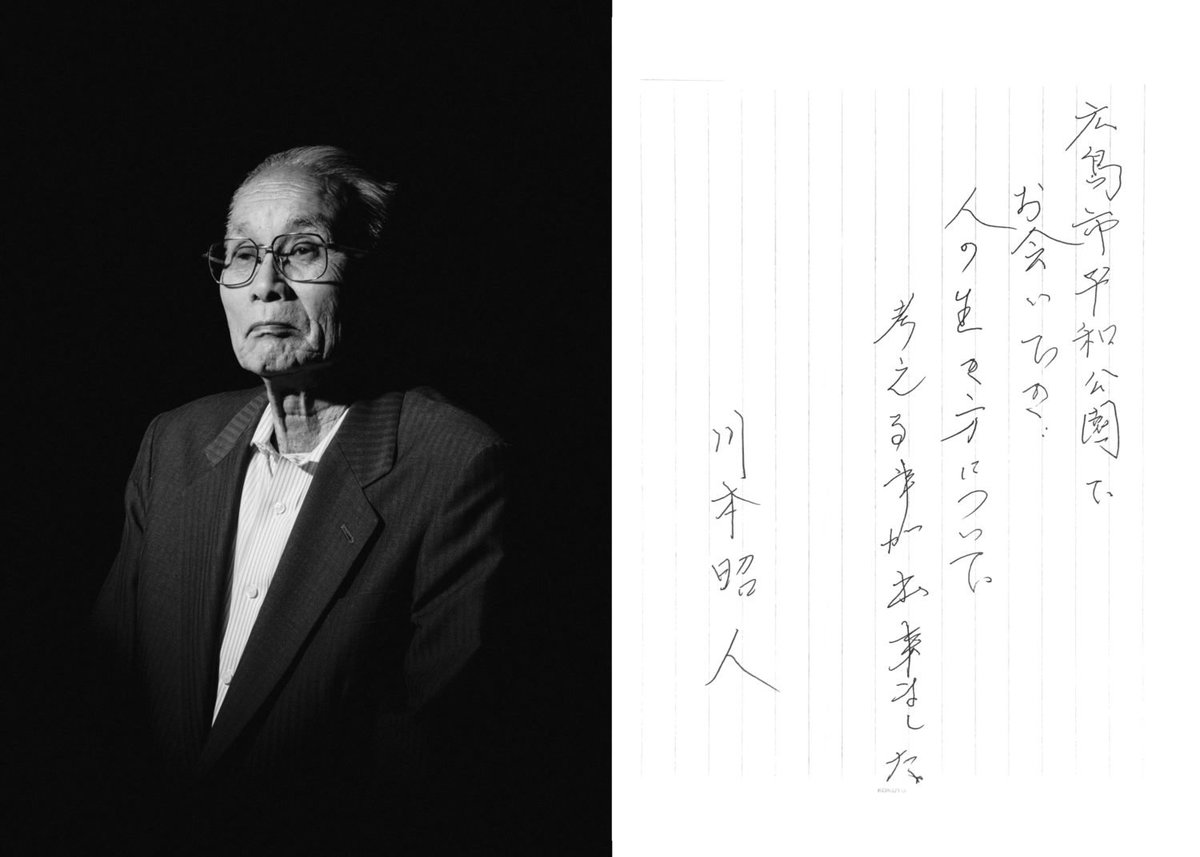 広島市平和公園で
お会いでき、
人の生き方について
考える事が出来ました
川本昭人
KOKUYO